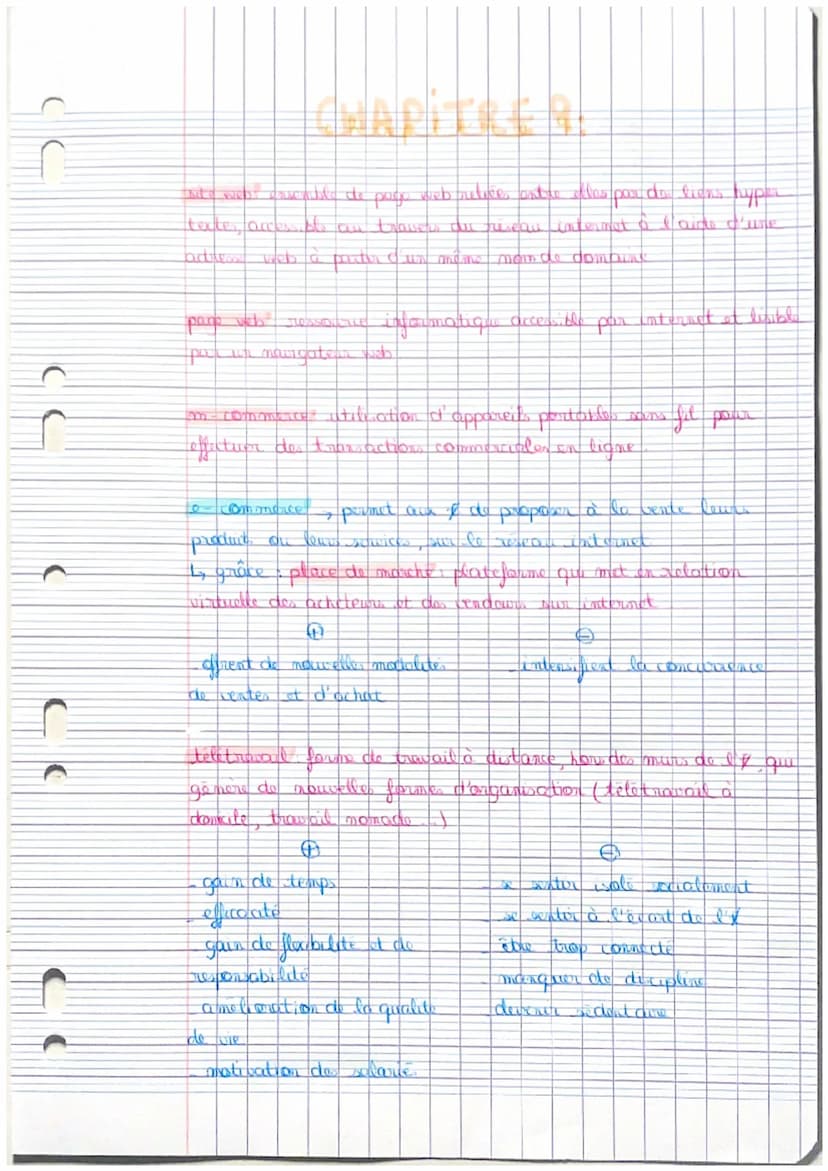 CHAPITRE 9:
site web: ensemble de page web reliées entre elles par des liens hyper
textes, accessible au travers du réseau internet à l'aide d'une
adresse web à partir d'un même nom de domaine
page web: ressource informatique accessible par internet et lisible
par un navigateur web
m-commerce: utilisation d'appareils portables sans fil pour
effectuer des transactions commerciales en ligne.
e-commerce → permet aux de proposer à la vente leurs
produits ou leurs services, sur le réseau internet
↳ grâce : place de marché: plateforme qui met en relation
virtuelle des acheteurs et des vendeurs sur internet
⊕ ⊖
- offrent de nouvelles modalités - intensifient la concurrence
de ventes et d'achat
télétravail: forme de travail à distance, hors des murs de l' qui
génère de nouvelles formes d'organisation (télétravail à
domicile, travail nomade ...)
⊕ ⊖
- gain de temps - se sentir isolé socialement
- efficacité - se sentir à l'écart de l'
- gain de flexibilité et de - être trop connecté
responsabilité - manquer de discipline
- amélioration de la qualité - devenir sédentaire
de vie
- motivation des salarié